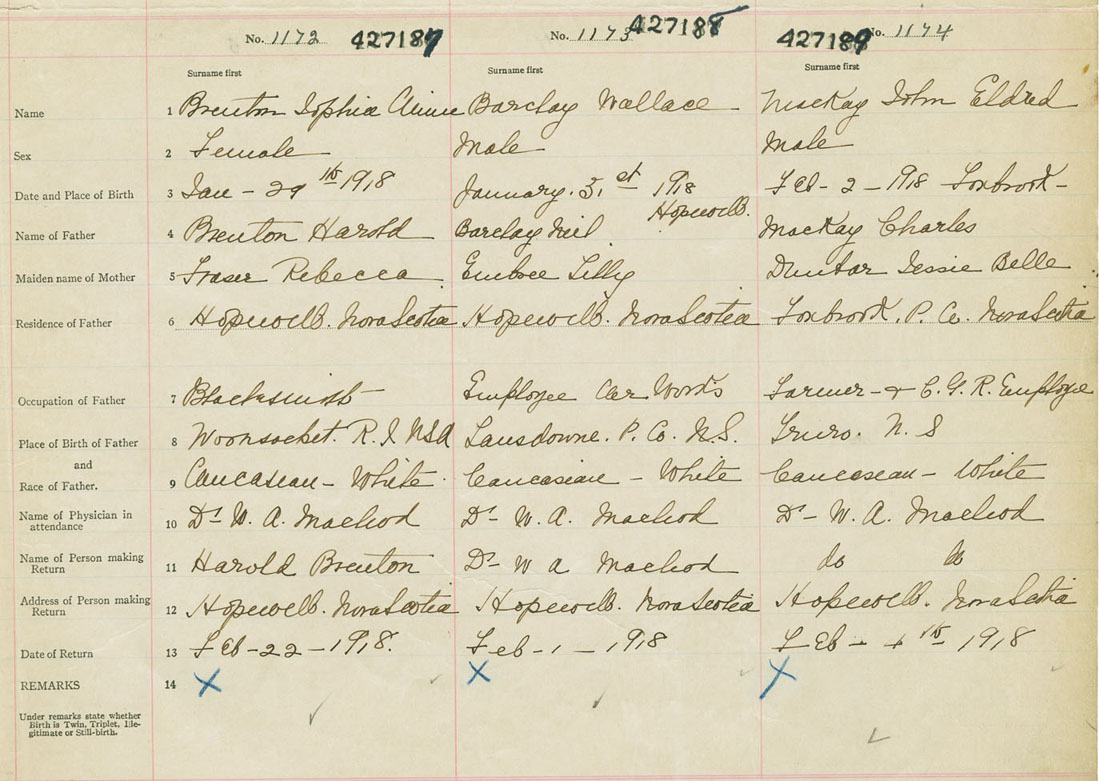 No. 1172 427187 No. 1173 427188 427189 No. 1174
Surname first Surname first Surname first
Name 1 Brenton Sophia Annie Barclay Wallace MacKay John Eldred
Sex 2 Female Male Male
Date and Place of Birth 3 Jan - 29th 1918 January. 31st 1918 Hopewell. Feb - 2 - 1918 Foxbrook -
Name of Father 4 Brenton Harold Barclay Neil MacKay Charles
Maiden name of Mother 5 Fraser Rebecca Embree Lilly Dunbar Jessie Belle
Residence of Father 6 Hopewell. Nova Scotia Hopewell. Nova Scotia Foxbrook, P. Co. Nova Scotia
Occupation of Father 7 Blacksmith Employee Car Works Farmer - + C. G. R. Employee
Place of Birth of Father 8 Woonsocket. R. I USA Lansdowne. P. Co. N.S. Truro. N. S
and
Race of Father. 9 Caucasian - White Caucasian - White Caucasian - White
Name of Physician in attendance 10 Dr W. A. Macleod Dr - W. A. Macleod Dr - W. A. Macleod
Name of Person making Return 11 Harold Brenton Dr - W A Macleod do do
Address of Person making Return 12 Hopewell. Nova Scotia Hopewell. Nova Scotia Hopewell. Nova Scotia
Date of Return 13 Feb - 22 - 1918. Feb - 1 - 1918 Feb - 4th 1918
REMARKS 14 X X X
Under remarks state whether
Birth is Twin, Triplet, Ille-
gitimate or Still-birth.